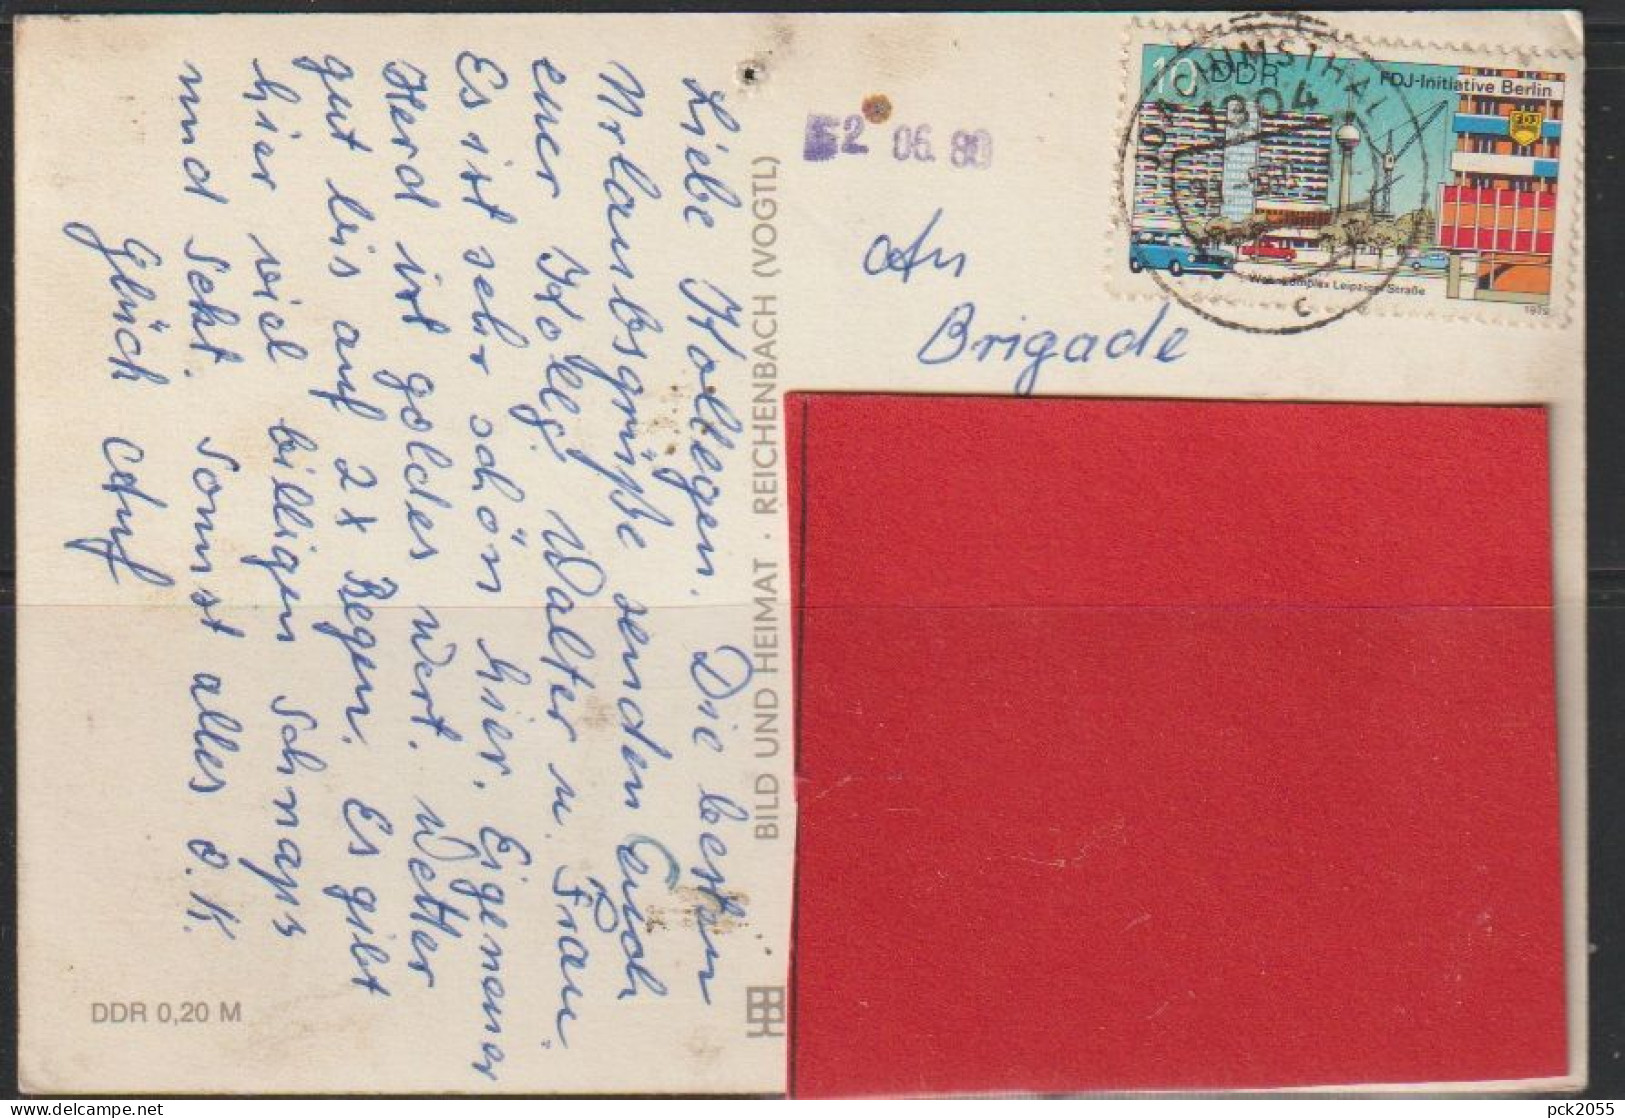 Liebe Kollegen. Die besten
Urlaubsgrüße senden Euch
euer Kolleg. Walter u. Frau.
Es ist sehr schön hier. Eigener
Herd ist goldes wert. Wetter
gut bis auf 2x Regen. Es gibt
hier viel billigen Schnaps
und Sekt. Sonst alles O.K.
Glück Auf
DDR 0,20 M
BILD UND HEIMAT · REICHENBACH (VOGTL)
2 06. 80
An
Brigade
10 DDR
FDJ-Initiative Berlin
FDJ
JOACHIMSTHAL
1304
c
Wohnkomplex Leipziger Straße
1979
pck2055